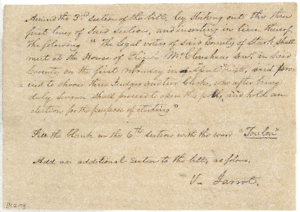 Amend the 2nd section of the bill by striking out the three
first lines of said section, and inserting in lieu thereof
the following "The legal voters of said County of Stark, shall
meet at the House of Elijah McClenahan Senr, in said
County on the first Monday in April next, and proceed
to choose three Judges and two Clerks, who after being
duly sworn shall proceed to open the polls, and hold an
election for the purpose of electing"
Fill the Blank in the 6th section with the word "Toulon"
Add an additional section to the bill, as follows.
V. Jarrot.